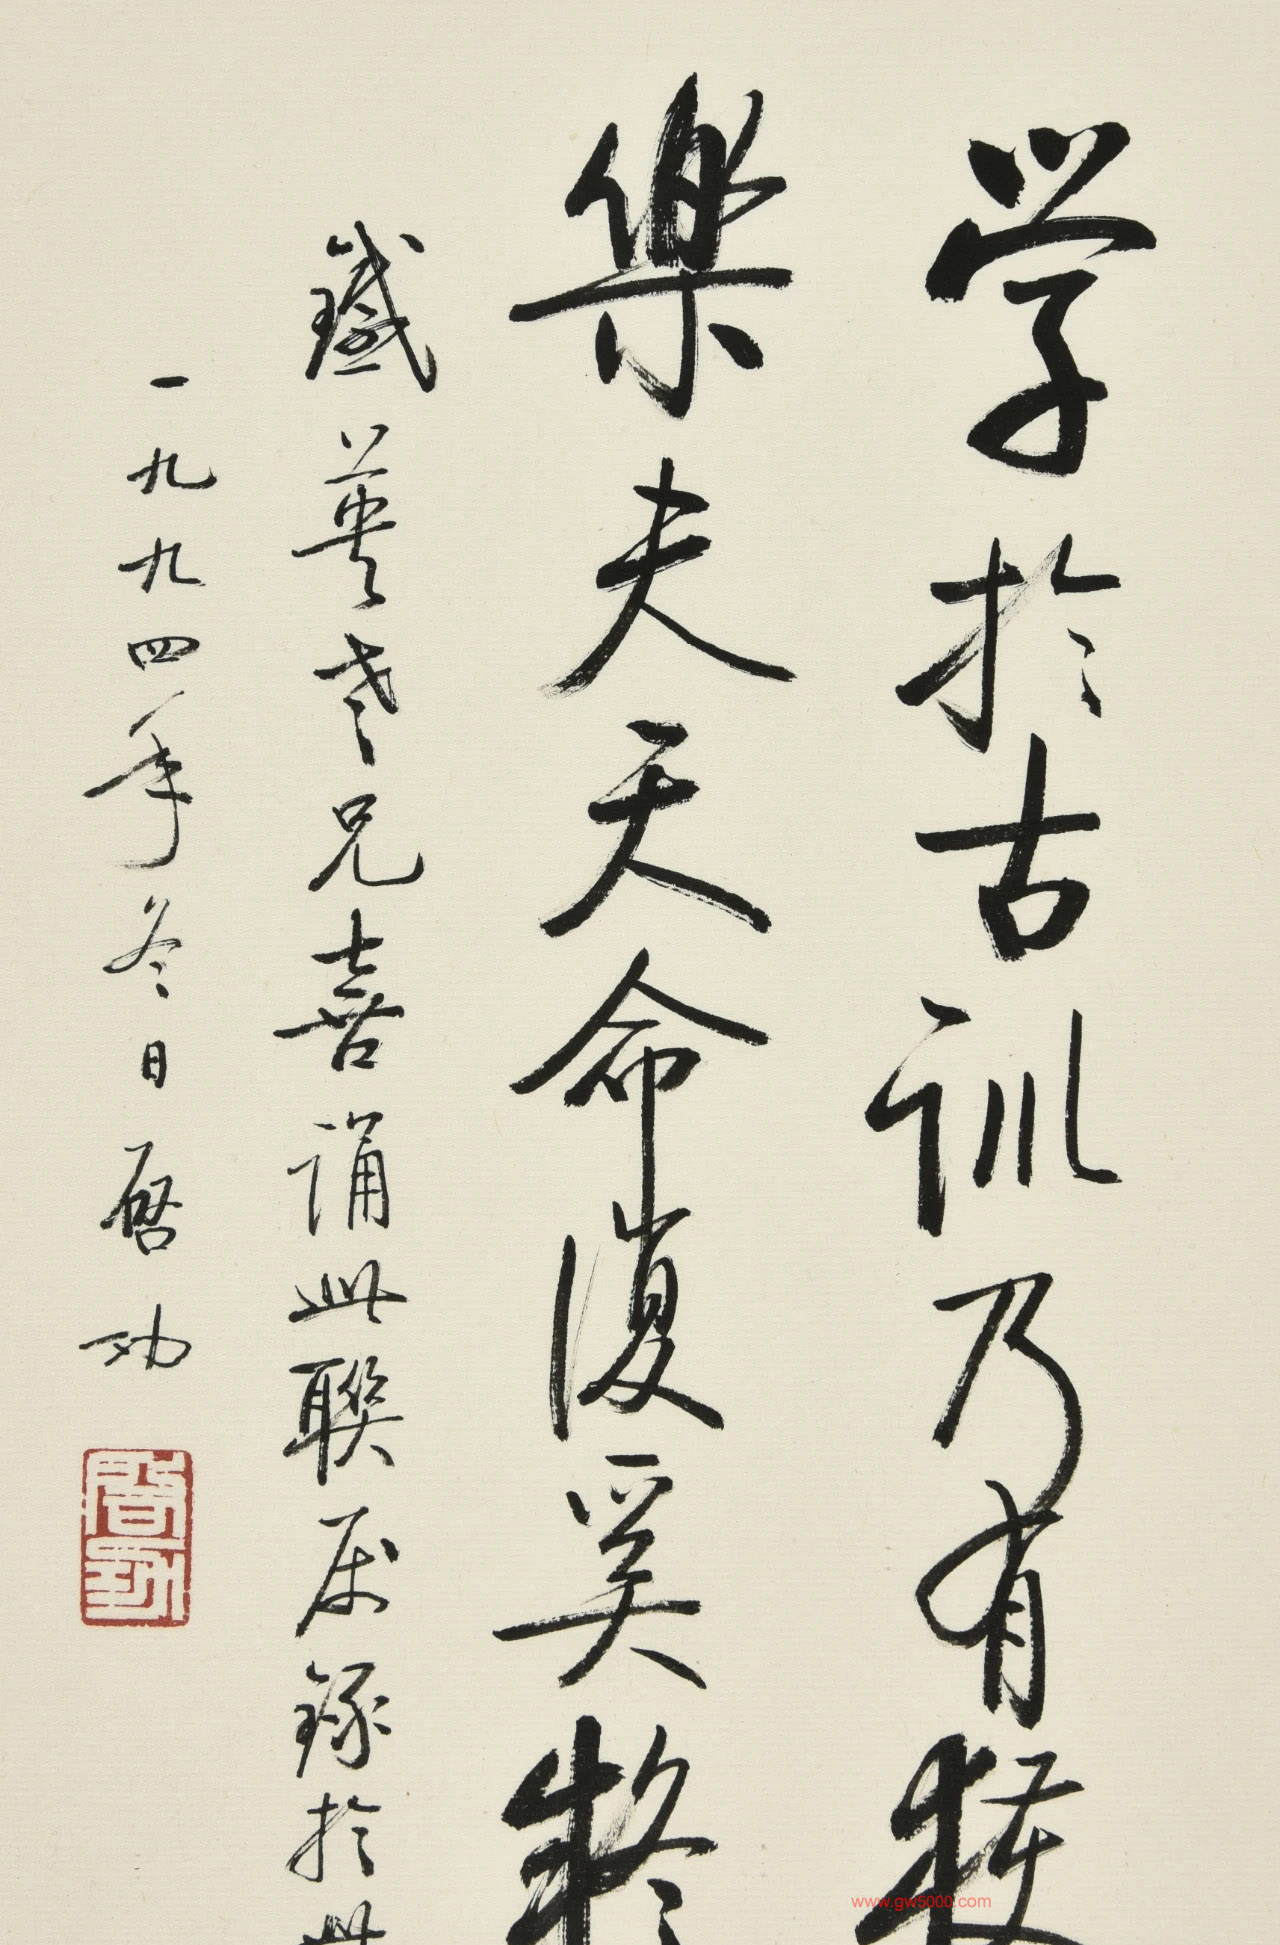 学於古訓乃有
樂夫天命復奚
鐵英老兄喜誦此聯属錄於此
一九九四年冬日啓功
啓功
www.gw5000.com